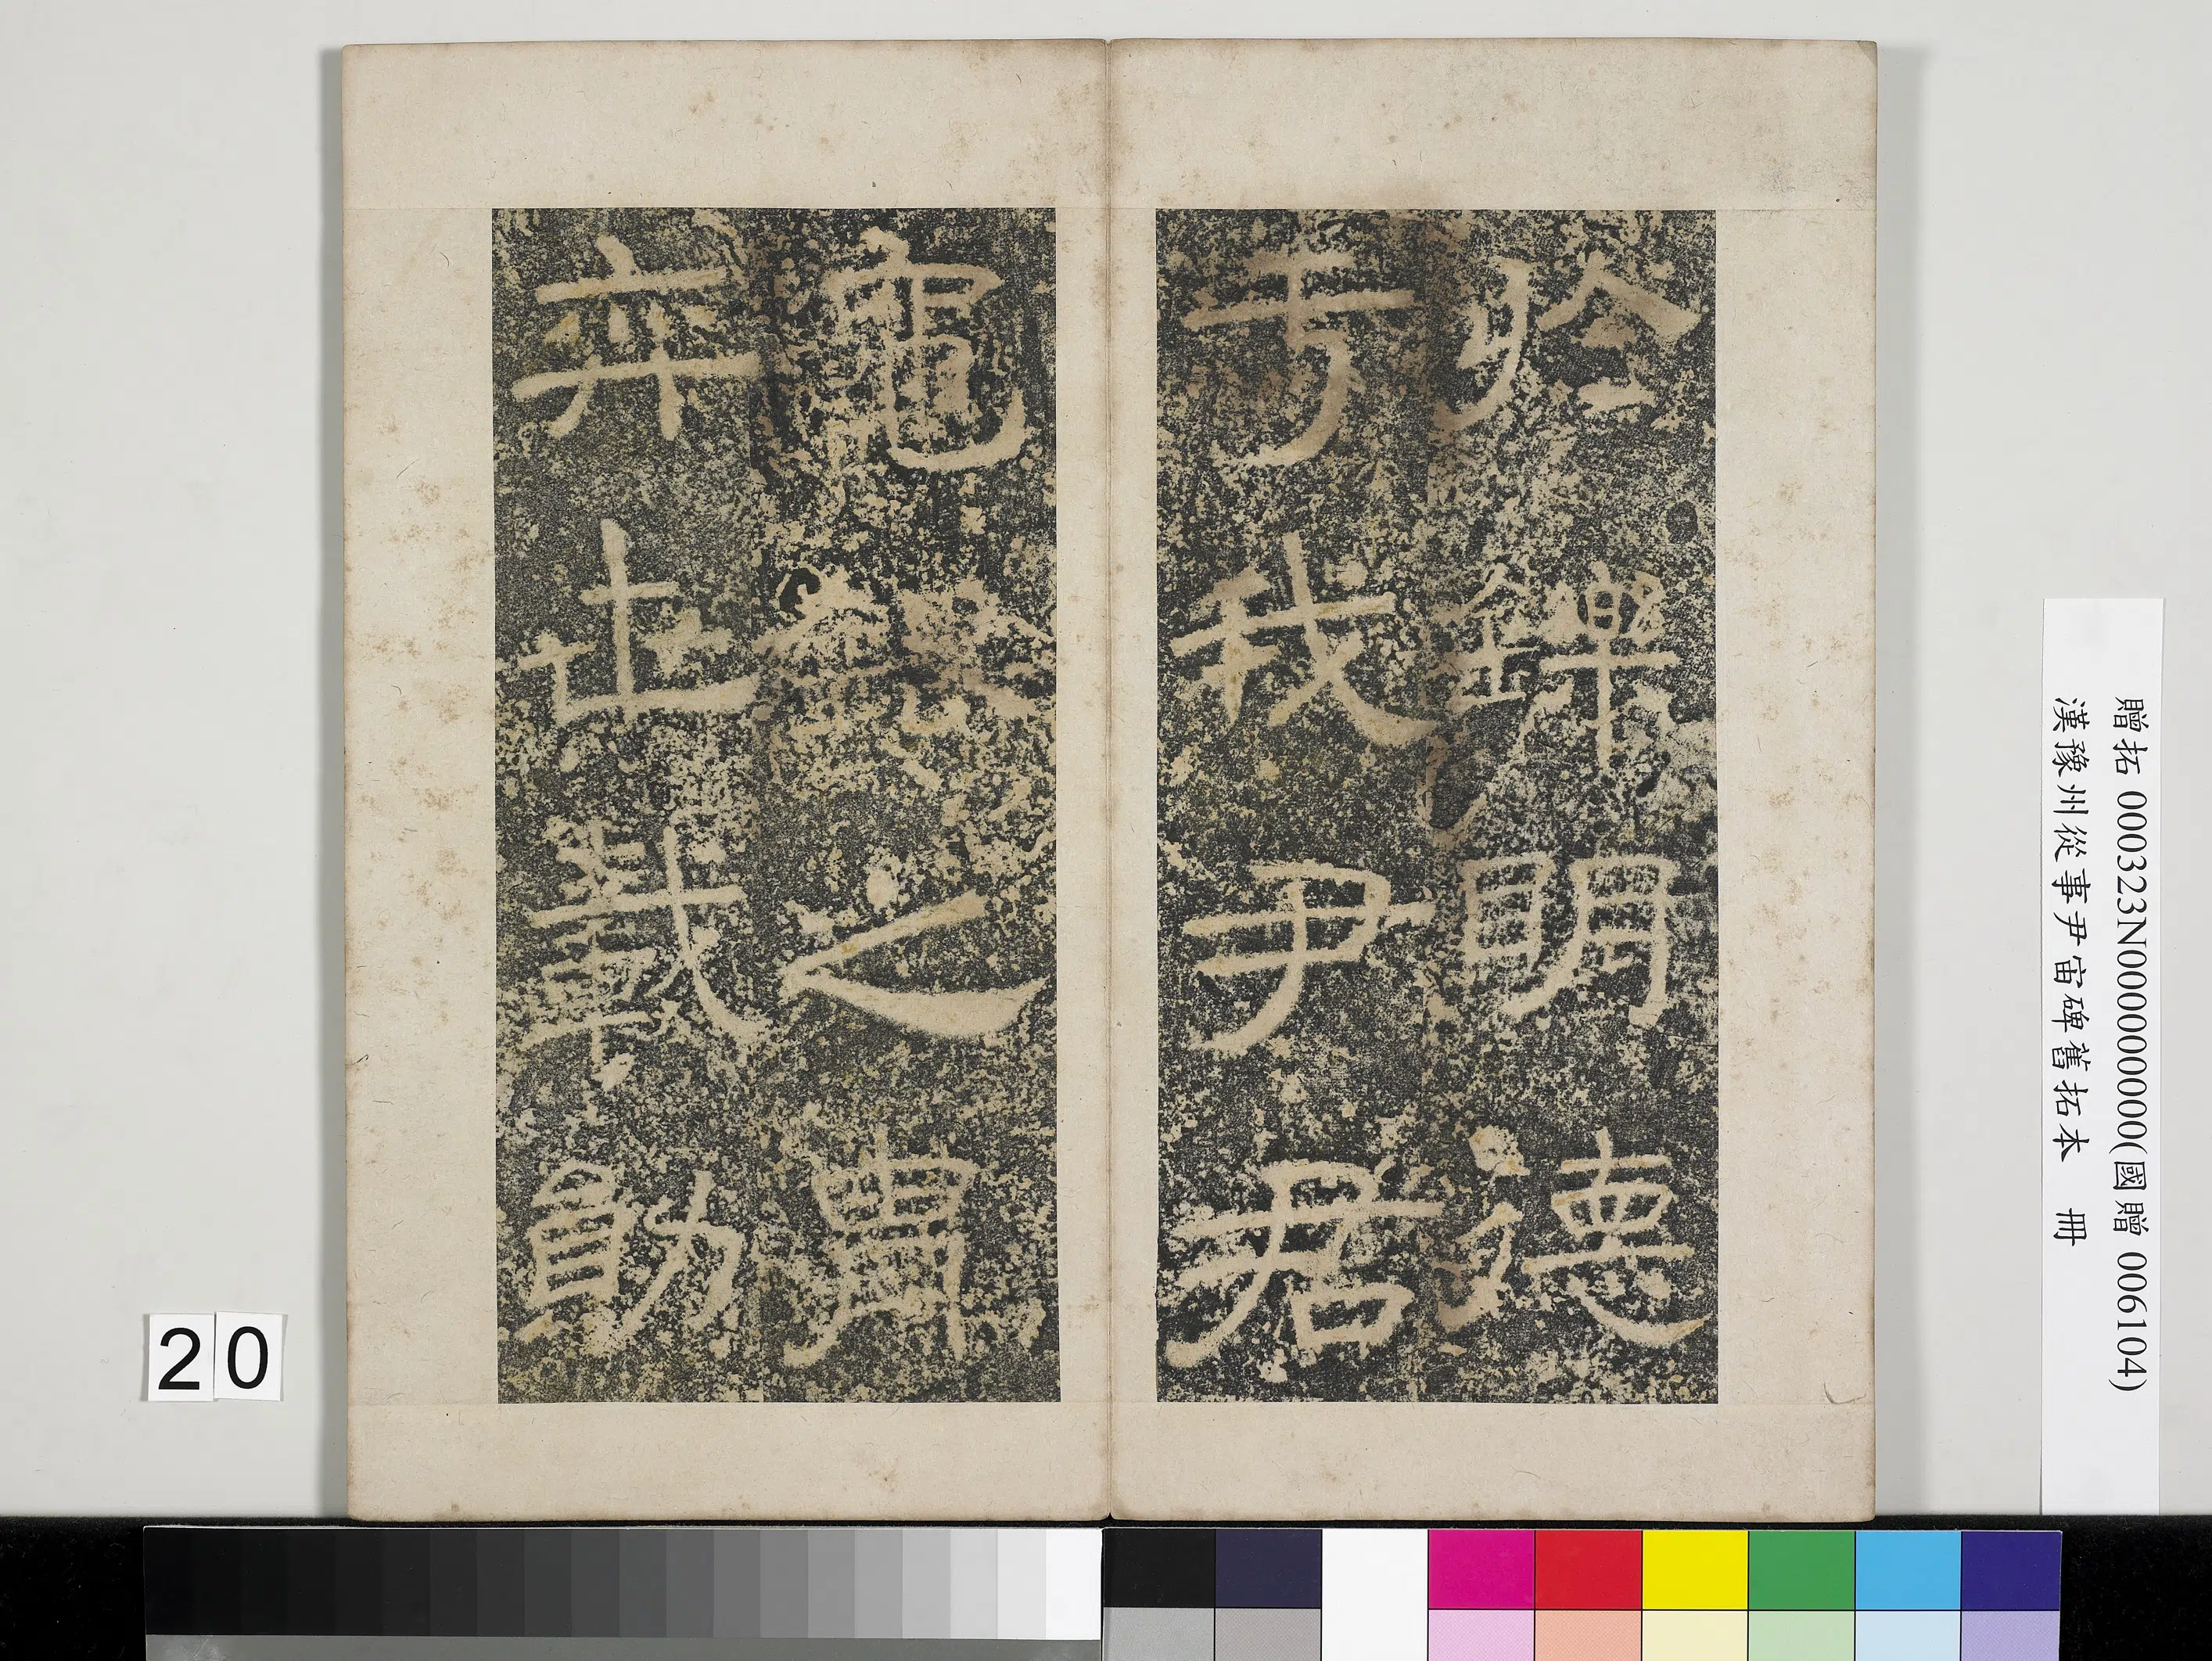 於鑠明德
于我尹君
龜銀之冑
弈世載勛
20
贈拓 000323N000000000(國贈 006104)
漢豫州從事尹宙碑舊拓本 冊